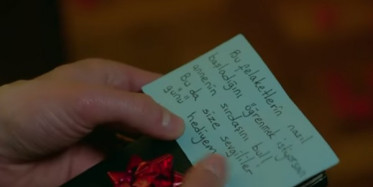 Bu felaketlerin nasıl
başladığını öğrenmek istiyorsan
annenin sırdaşını bul!
Bu da size sevgililer
günü hediyem